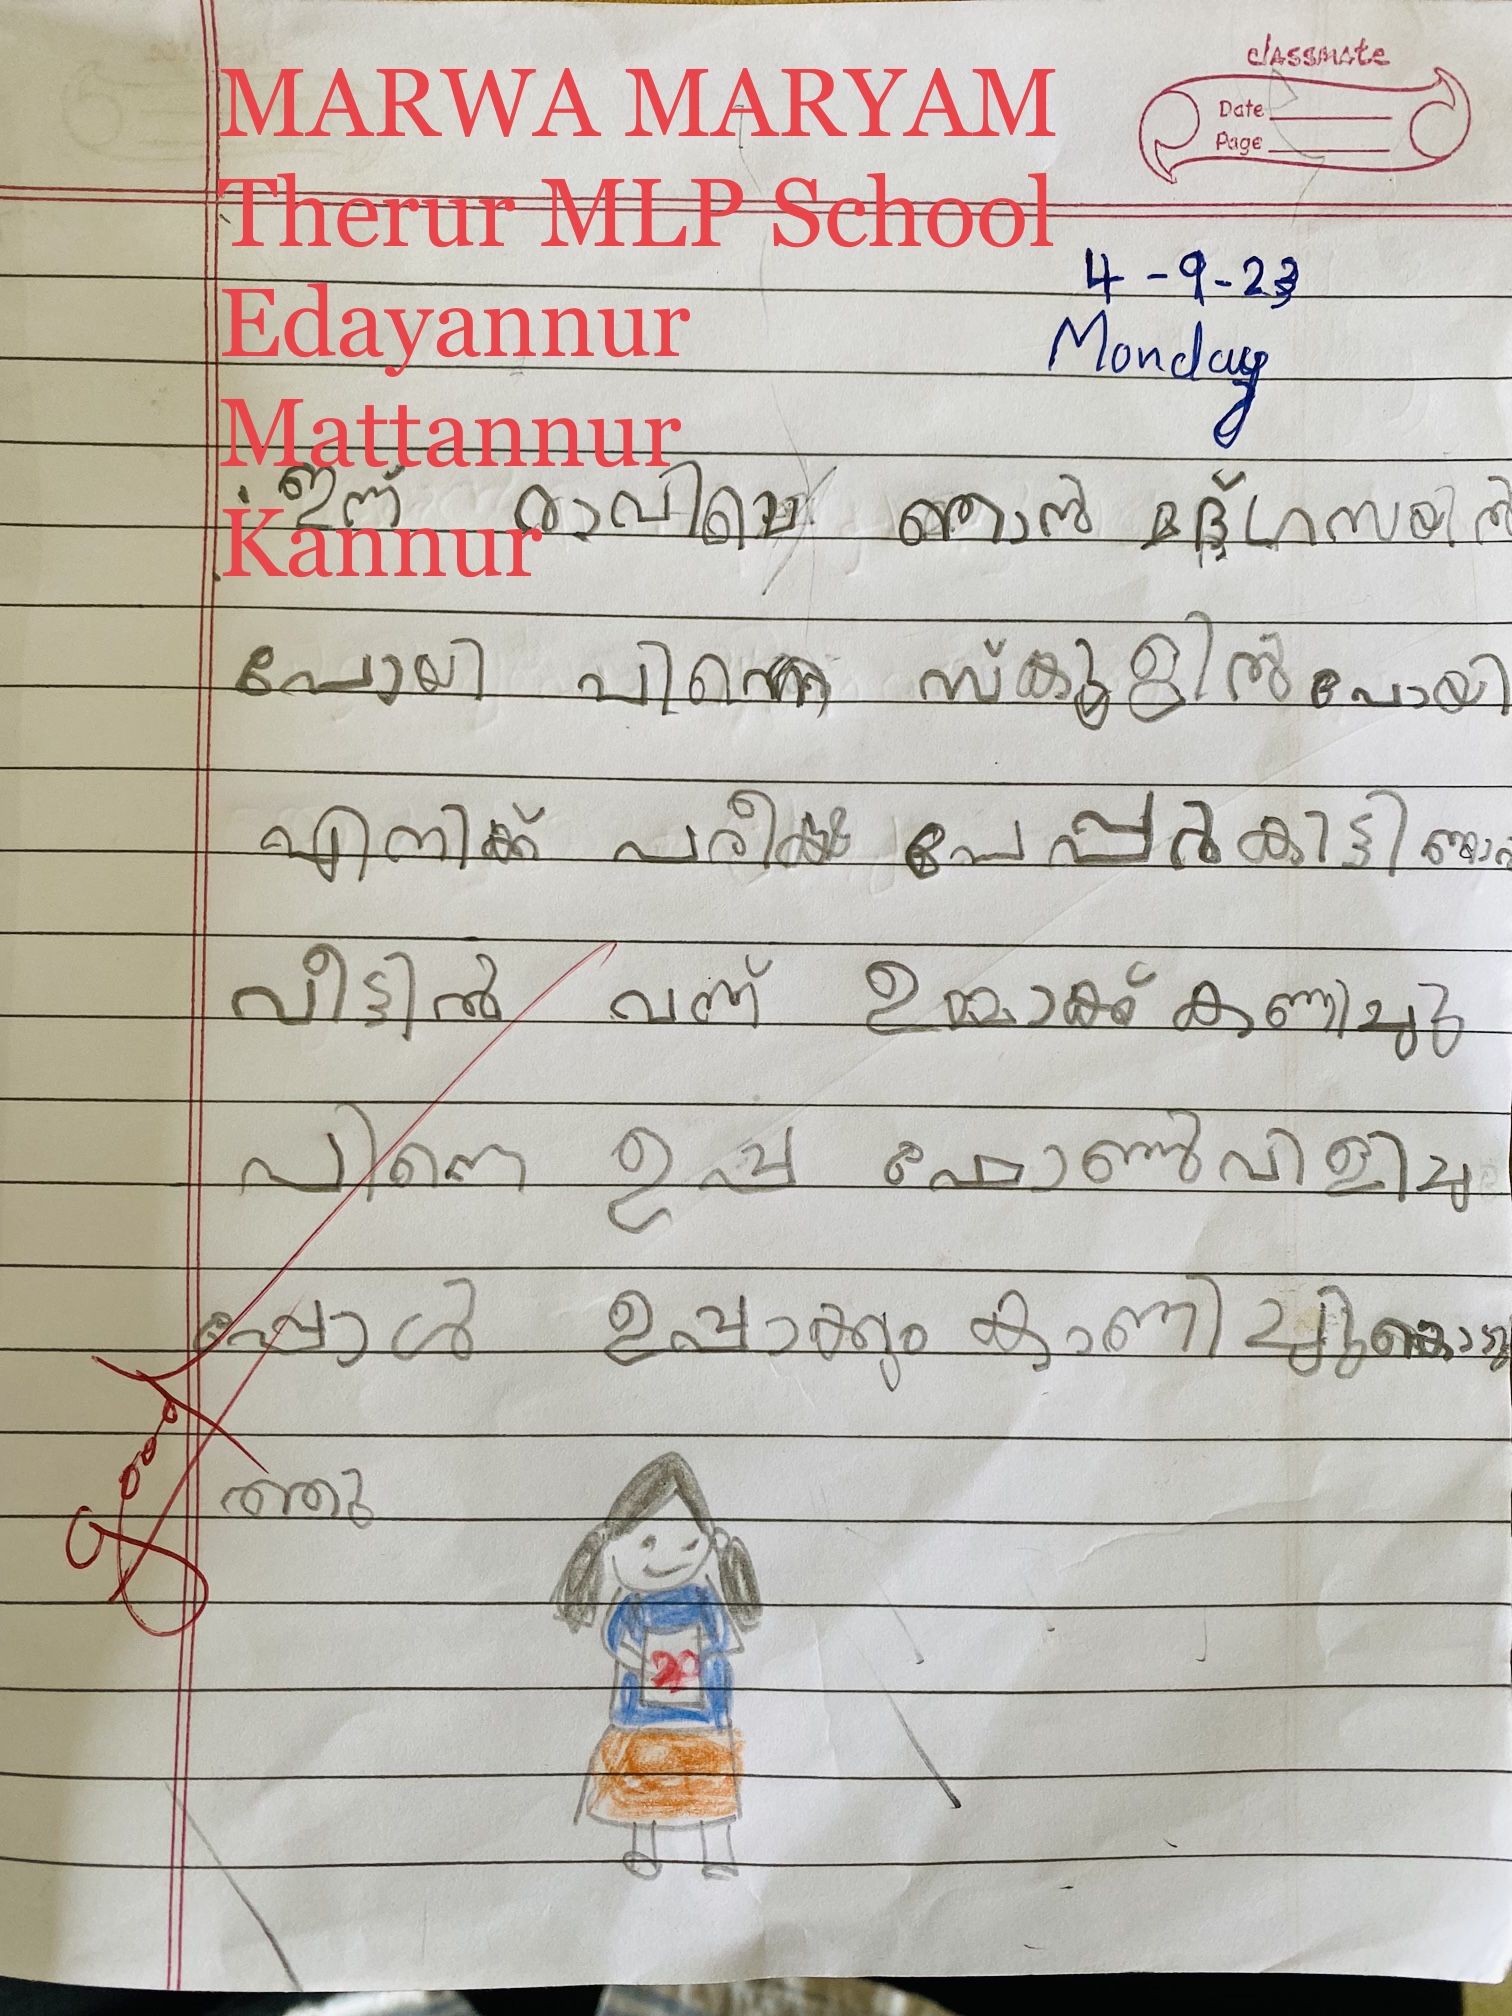 classmate
Date
Page
MARWA MARYAM
Therur MLP School
Edayannur
Mattannur
Kannur
4-9-23
Monday
ഇന്ന് രാവിലെ ഞാൻ മദ്രസയിൽ
പോയി പിന്നെ സ്കൂളിൽ പോയി
എനിക്ക് പരീക്ഷ പേപ്പർ കിട്ടി ഞാൻ
വീട്ടിൽ വന്ന് കാണിച്ചു
പിന്നെ ഉപ്പ ഫോൺ വിളിച്ച
പ്പോൾ ഉപ്പാക്കും കാണിച്ചു കൊടു
ത്തു
good